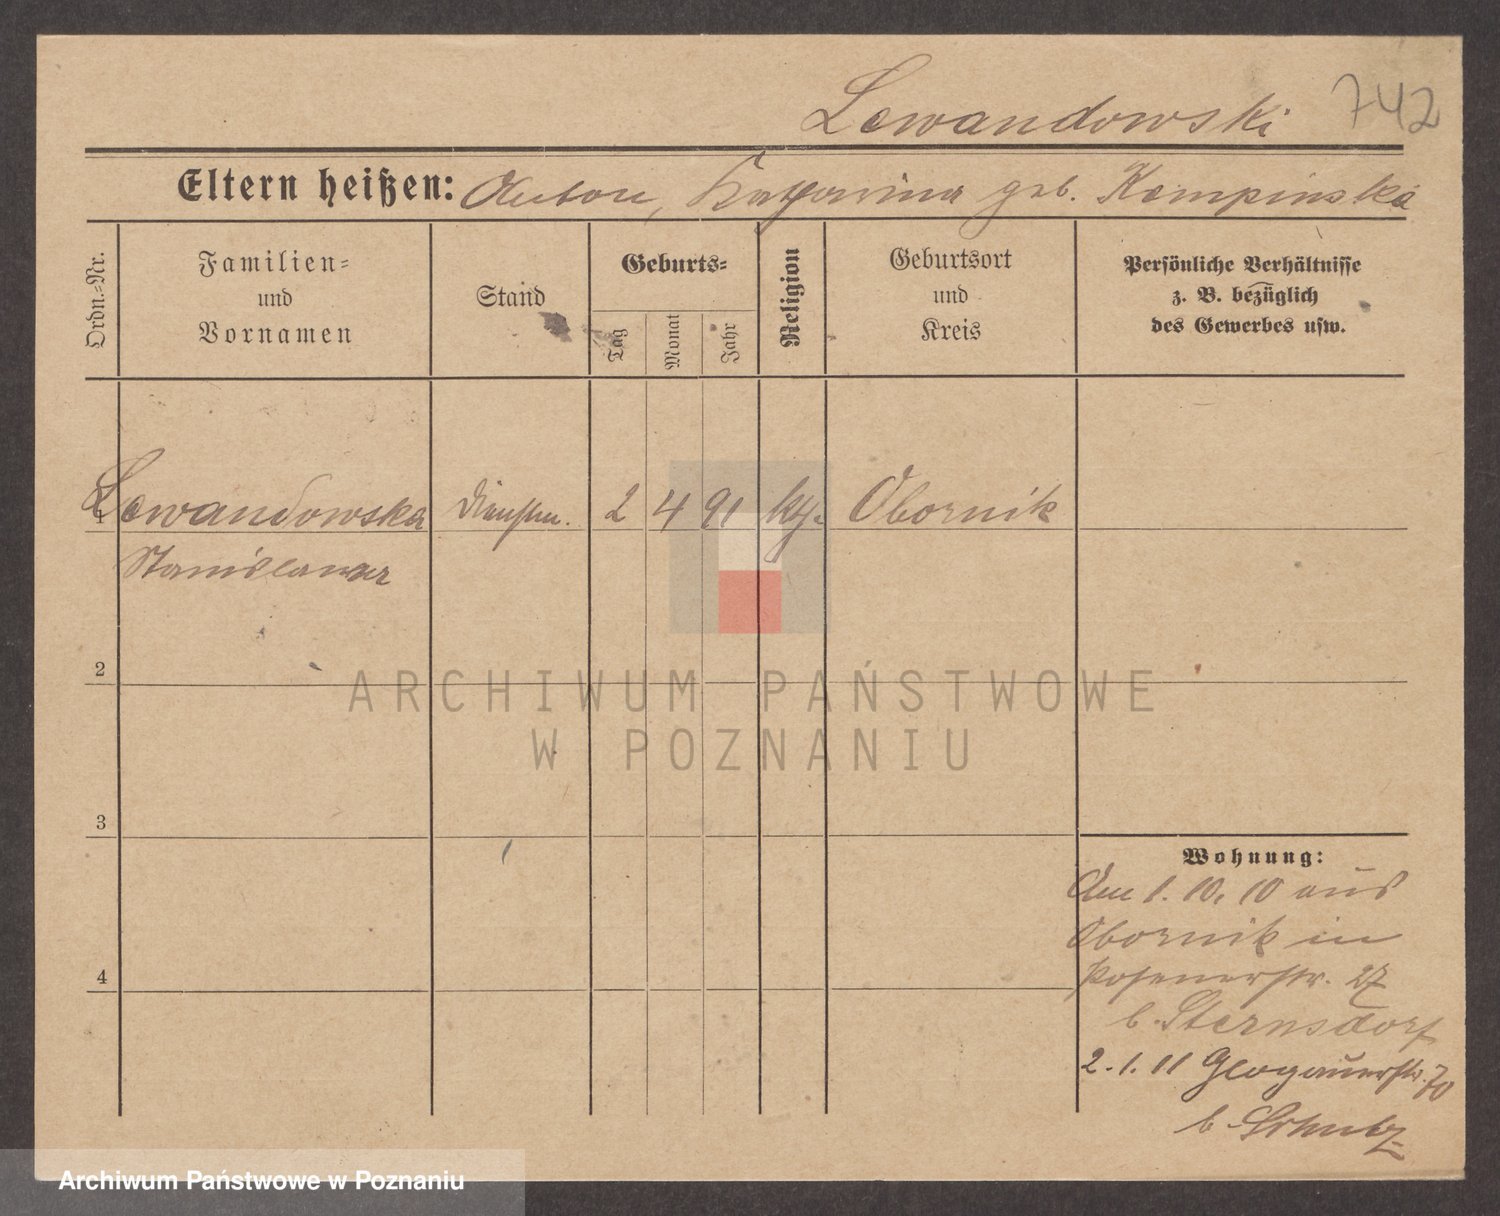 Lewandowski 742
Eltern heißen: Anton, Katharina geb. Kempinska
Ordn.-Nr.
Familien-
und
Vornamen
Stand
Geburts-
Tag
Monat
Jahr
Religion
Geburtsort
und
Kreis
Persönliche Verhältnisse
z. B. bezüglich
des Gewerbes usw.
1 Lewandowska Dienstm. 2 4 91 kth. Obornik
Stanislawa
2
3
4
Wohnung:
Am 1.10.10 aus
Obornik in
Posenerstr. 27
b. Sternsdorf
2.1.11 Glogauerstr. 70
b. Schulz
ARCHIWUM PAŃSTWOWE
W POZNANIU
Archiwum Państwowe w Poznaniu